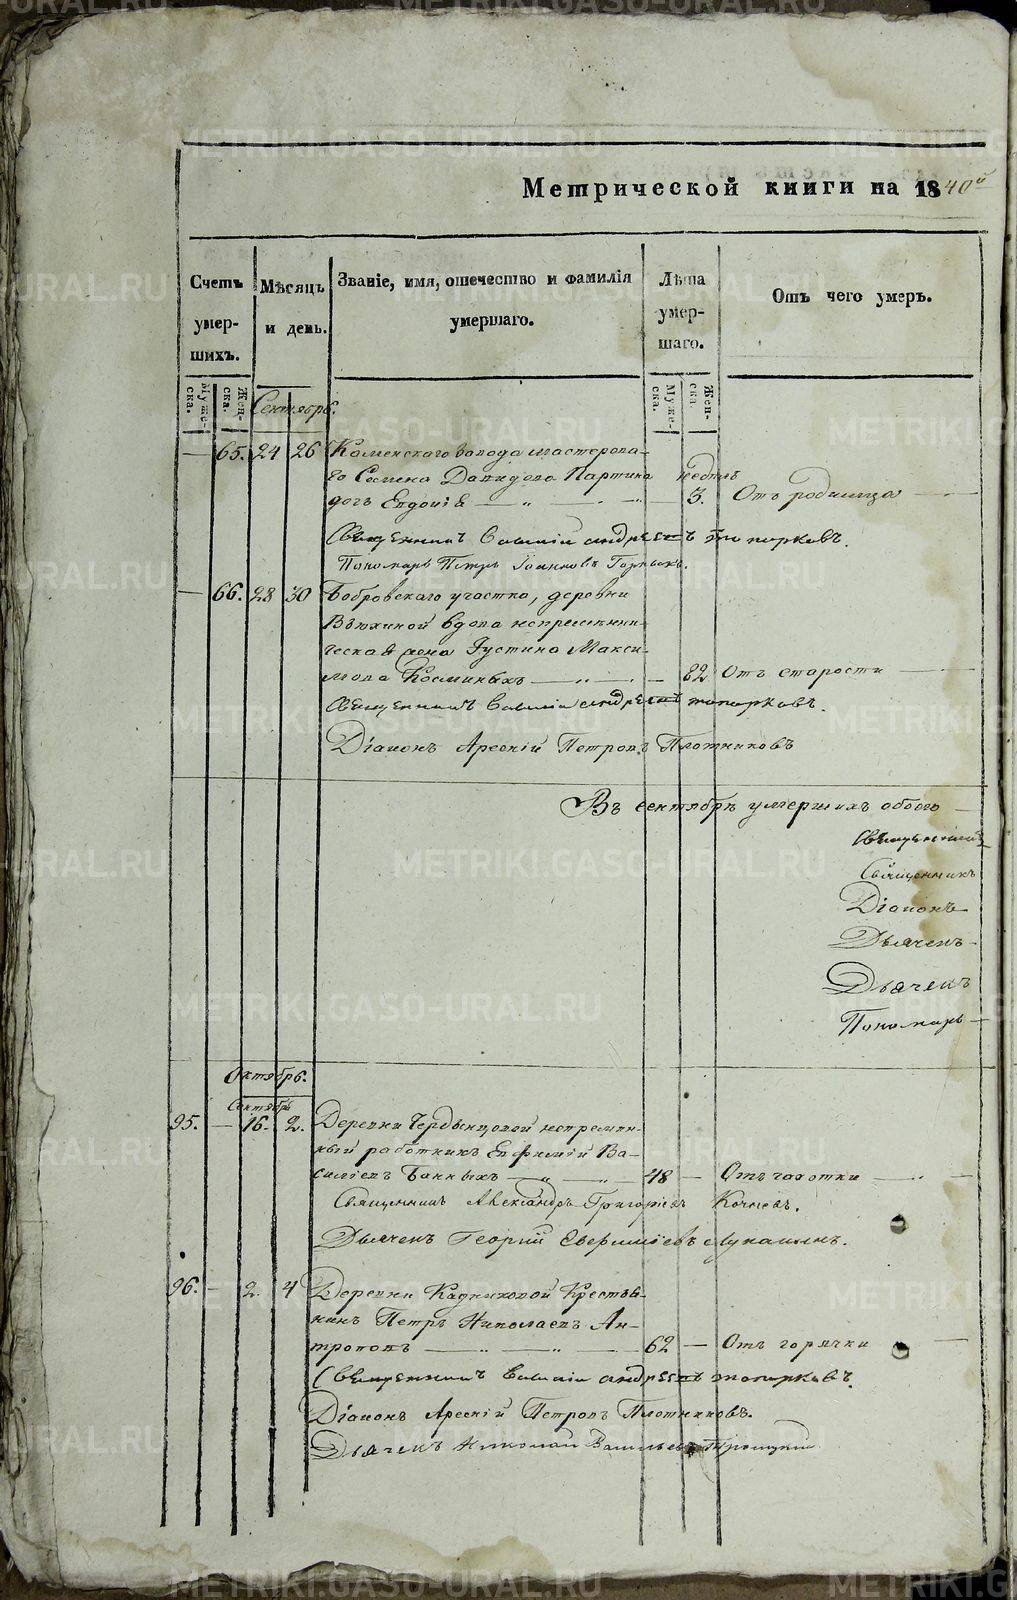 Метрической книги на 1840й
Счетъ умершихъ.
Мѣсяцъ и день.
Званіе, имя, отечество и фамилія умершаго.
Лѣта умершаго.
Отъ чего умеръ.
Мужеска.
Женска.
Мужеска.
Женска.
Сентябрь.
— 65. 24 26 Каменскаго завода мастерова-
го Семена Давидова Партина недѣль
дочь Евдокія — „ — „ — 3. Отъ родимца —
Священникъ Василій Андреевъ Топорковъ.
Пономарь Петръ Іоанновъ Горныхъ.
— 66. 28 30 Бобровскаго участка, деревни
Вдова непремѣнни-
ческая жена Іустина Макси-
мова Косминыхъ — „ — „ — 82 Отъ старости —
Священникъ Василій Андреевъ Топорковъ.
Діаконъ Арсеній Петровъ Плотниковъ
Въ сентябрѣ умершихъ обоего —
Священникъ
Священникъ
Діаконъ
Дьячекъ
Дьячекъ
Пономарь
Октябрь.
Сентября
95. — 16. 2. Деревни непремѣн-
ный работникъ Евфимій Ва-
силіевъ Банныхъ — „ — „ — 48 — Отъ чахотки — „ —
Священникъ Александръ Григоріевъ Кочневъ.
Дьячекъ Георгій Лукашинъ.
96. — 2. 4 Деревни Кадниковой Кресть-
нинъ Петръ Николаевъ Ан-
троповъ — „ — „ — 62 — Отъ горячки —
Священникъ Василій Андреевъ Топорковъ.
Діаконъ Арсеній Петровъ Плотниковъ.
Дьячекъ Николай Васильевъ Троицкій
METRIKI.GASO-URAL.RU